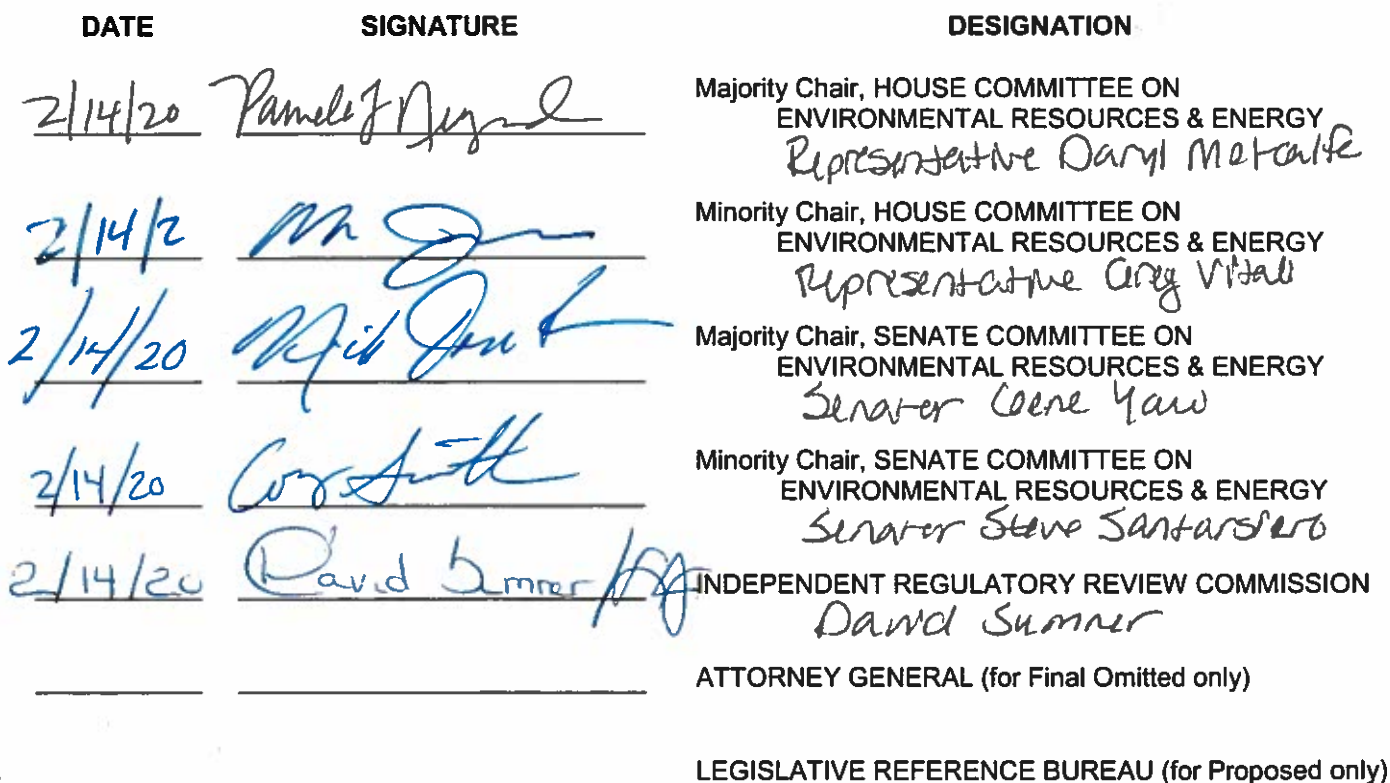 DATE SIGNATURE DESIGNATION
2/14/20 Majority Chair, HOUSE COMMITTEE ON
ENVIRONMENTAL RESOURCES & ENERGY
Representative Daryl Metcalfe
2/14/2 Minority Chair, HOUSE COMMITTEE ON
ENVIRONMENTAL RESOURCES & ENERGY
Representative Greg Vitali
2/14/20 Majority Chair, SENATE COMMITTEE ON
ENVIRONMENTAL RESOURCES & ENERGY
Senator Gene Yaw
2/14/20 Minority Chair, SENATE COMMITTEE ON
ENVIRONMENTAL RESOURCES & ENERGY
Senator Steve Santarsiero
2/14/20 David Sumner INDEPENDENT REGULATORY REVIEW COMMISSION
David Sumner
ATTORNEY GENERAL (for Final Omitted only)
LEGISLATIVE REFERENCE BUREAU (for Proposed only)